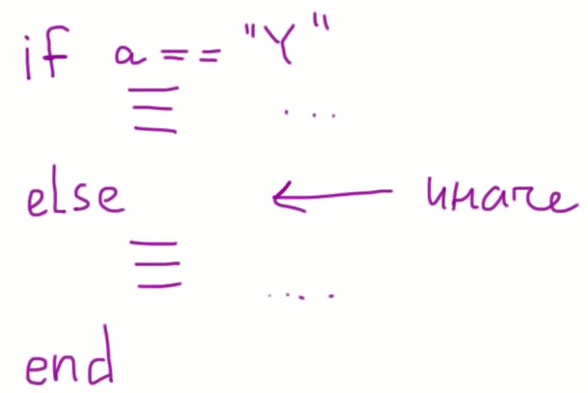 if a == "Y"
...
else ← иначе
....
end